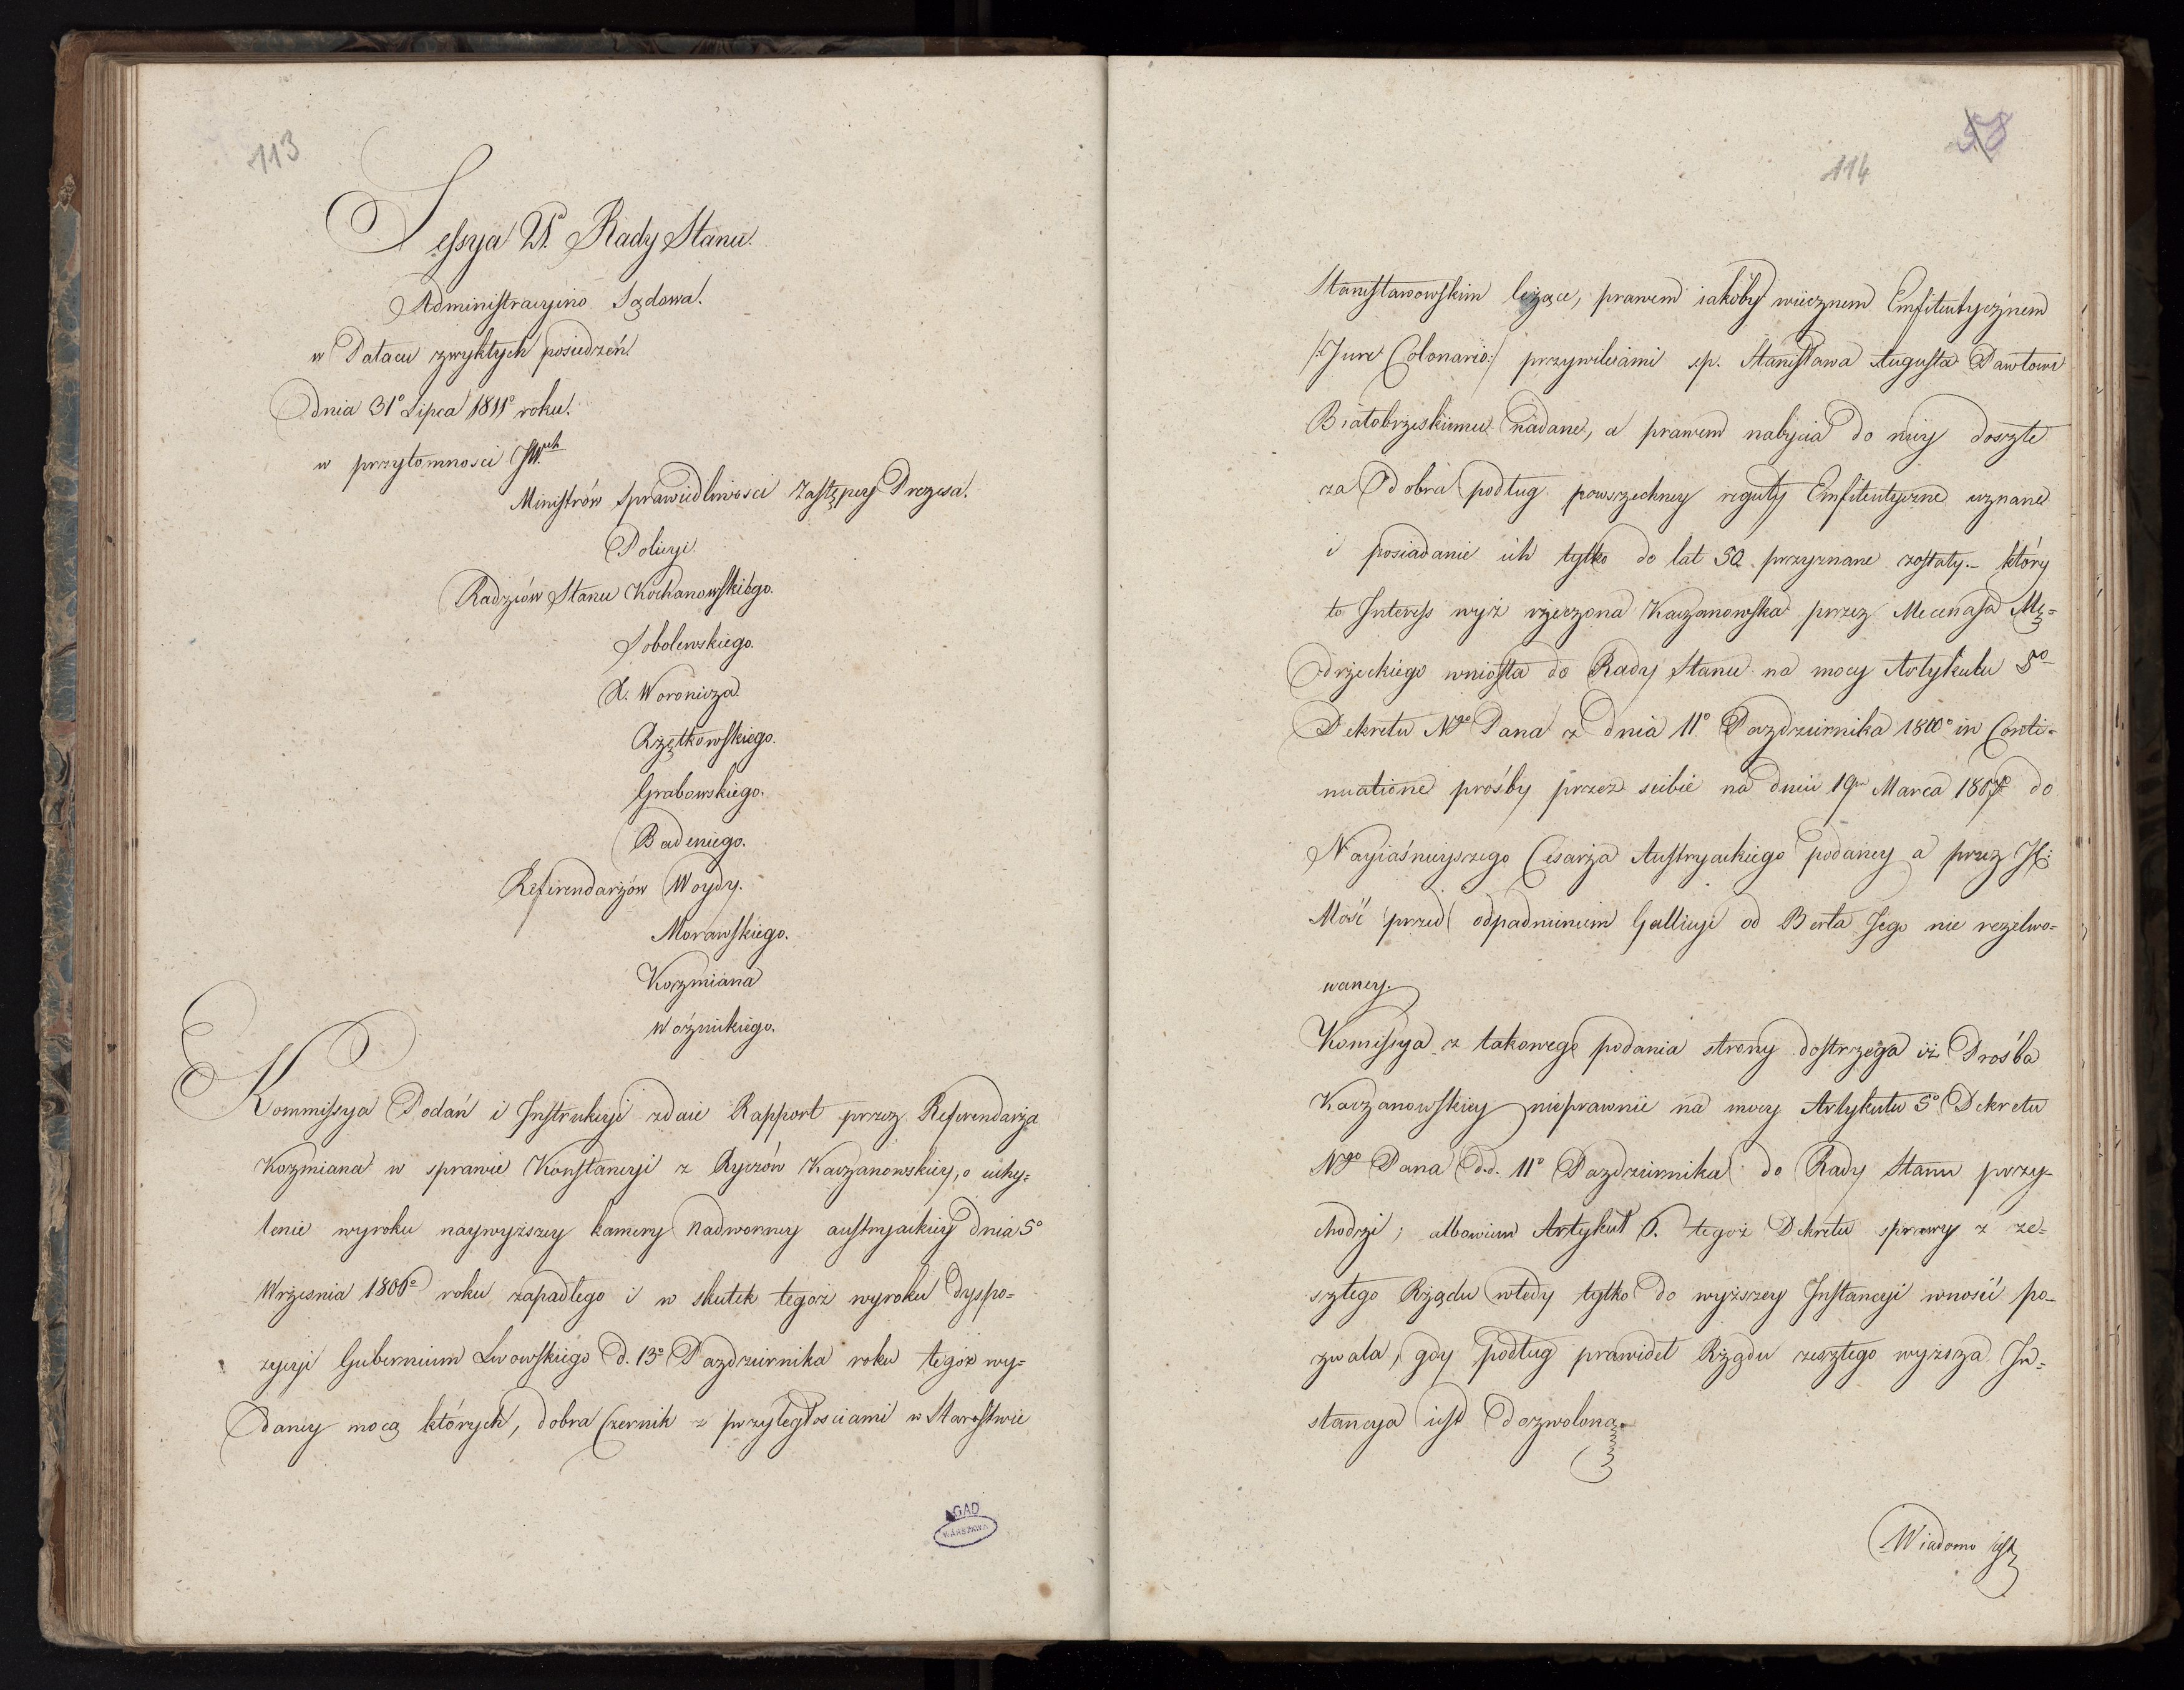 113
Sessya 21ª Rady Stanu.
Administracyino Sądowa.
w Pałacu zwykłych posiedzeń.
Dnia 31º Lipca 1811º roku.
w przytomnosci JW.ch
Ministrów Sprawiedliwosci Zastępcy Prezesa.
Policyi.
Radzców Stanu Kochanowskiego.
Sobolewskiego.
X. Woronicza.
Rzętkowskiego.
Grabowskiego.
Badeniego.
Referendarzów Woydy.
Morawskiego.
Kozmiana
Woźnickiego.
Kommissya Podań i Instrukcyi zdaie Rapport przez Referendarza
Kozmiana w sprawie Konstancyi z Ryczów Kaczanowskiey, o uchy=
lenie wyroku naywyższey kamery nadworney austryackiey dnia 5º
Wrzesnia 1806º roku zapadłego i w skutek tegoż wyroku dyspo=
zycyi Gubernium Lwowskiego d. 13º Pazdziernika roku tegoż wy=
daney mocą których, dobra Czernik z przyległosciami w Starostwie
AGAD
WARSZAWA
58
114
Stanisławowskim leżące, prawem iakoby wiecznem Emfiteutycznem
/:Jure Colonario:/ przywileiami sp. Stanisława Augusta Pawłowi
Białobrzeskiemu nadane, a prawem nabycia do niey doszłe
za Dobra podług powszechney reguły Emfiteutyczne uznane
i posiadanie ich tylko do lat 50 przyznane zostały.- który
to Interess wyż rzeczona Kaczanowska przez Mecenasa Mę=
drzeckiego wniosła do Rady Stanu na mocy Artykułu 5º
Dekretu Ngo Pana z dnia 11º Pazdziernika 1810º in Conti=
nuatione prośby przez siebie na dniu 19m Marca 1807º do
Nayiaśnieyszego Cesarza Austryackiego podaney a przez JC:
Mość przed odpadnieniem Gallicyi od Berła Jego nie rezolwo=
waney.
Komissya z takowego podania strony dostrzega iż Prośba
Kaczanowskiey nieprawnie na mocy Artykułu 5º Dekretu
Ngo Pana d.d. 11º Pazdziernika do Rady Stanu przy-
chodzi; albowiem Artykuł 6. tegoż Dekretu sprawy z ze=
szłego Rządu wtedy tylko do wyższey Instancyi wnosić po-
zwala, gdy podług prawideł Rządu zeszłego wyższa In=
stancya iest dozwolona.
Wiadomo iest